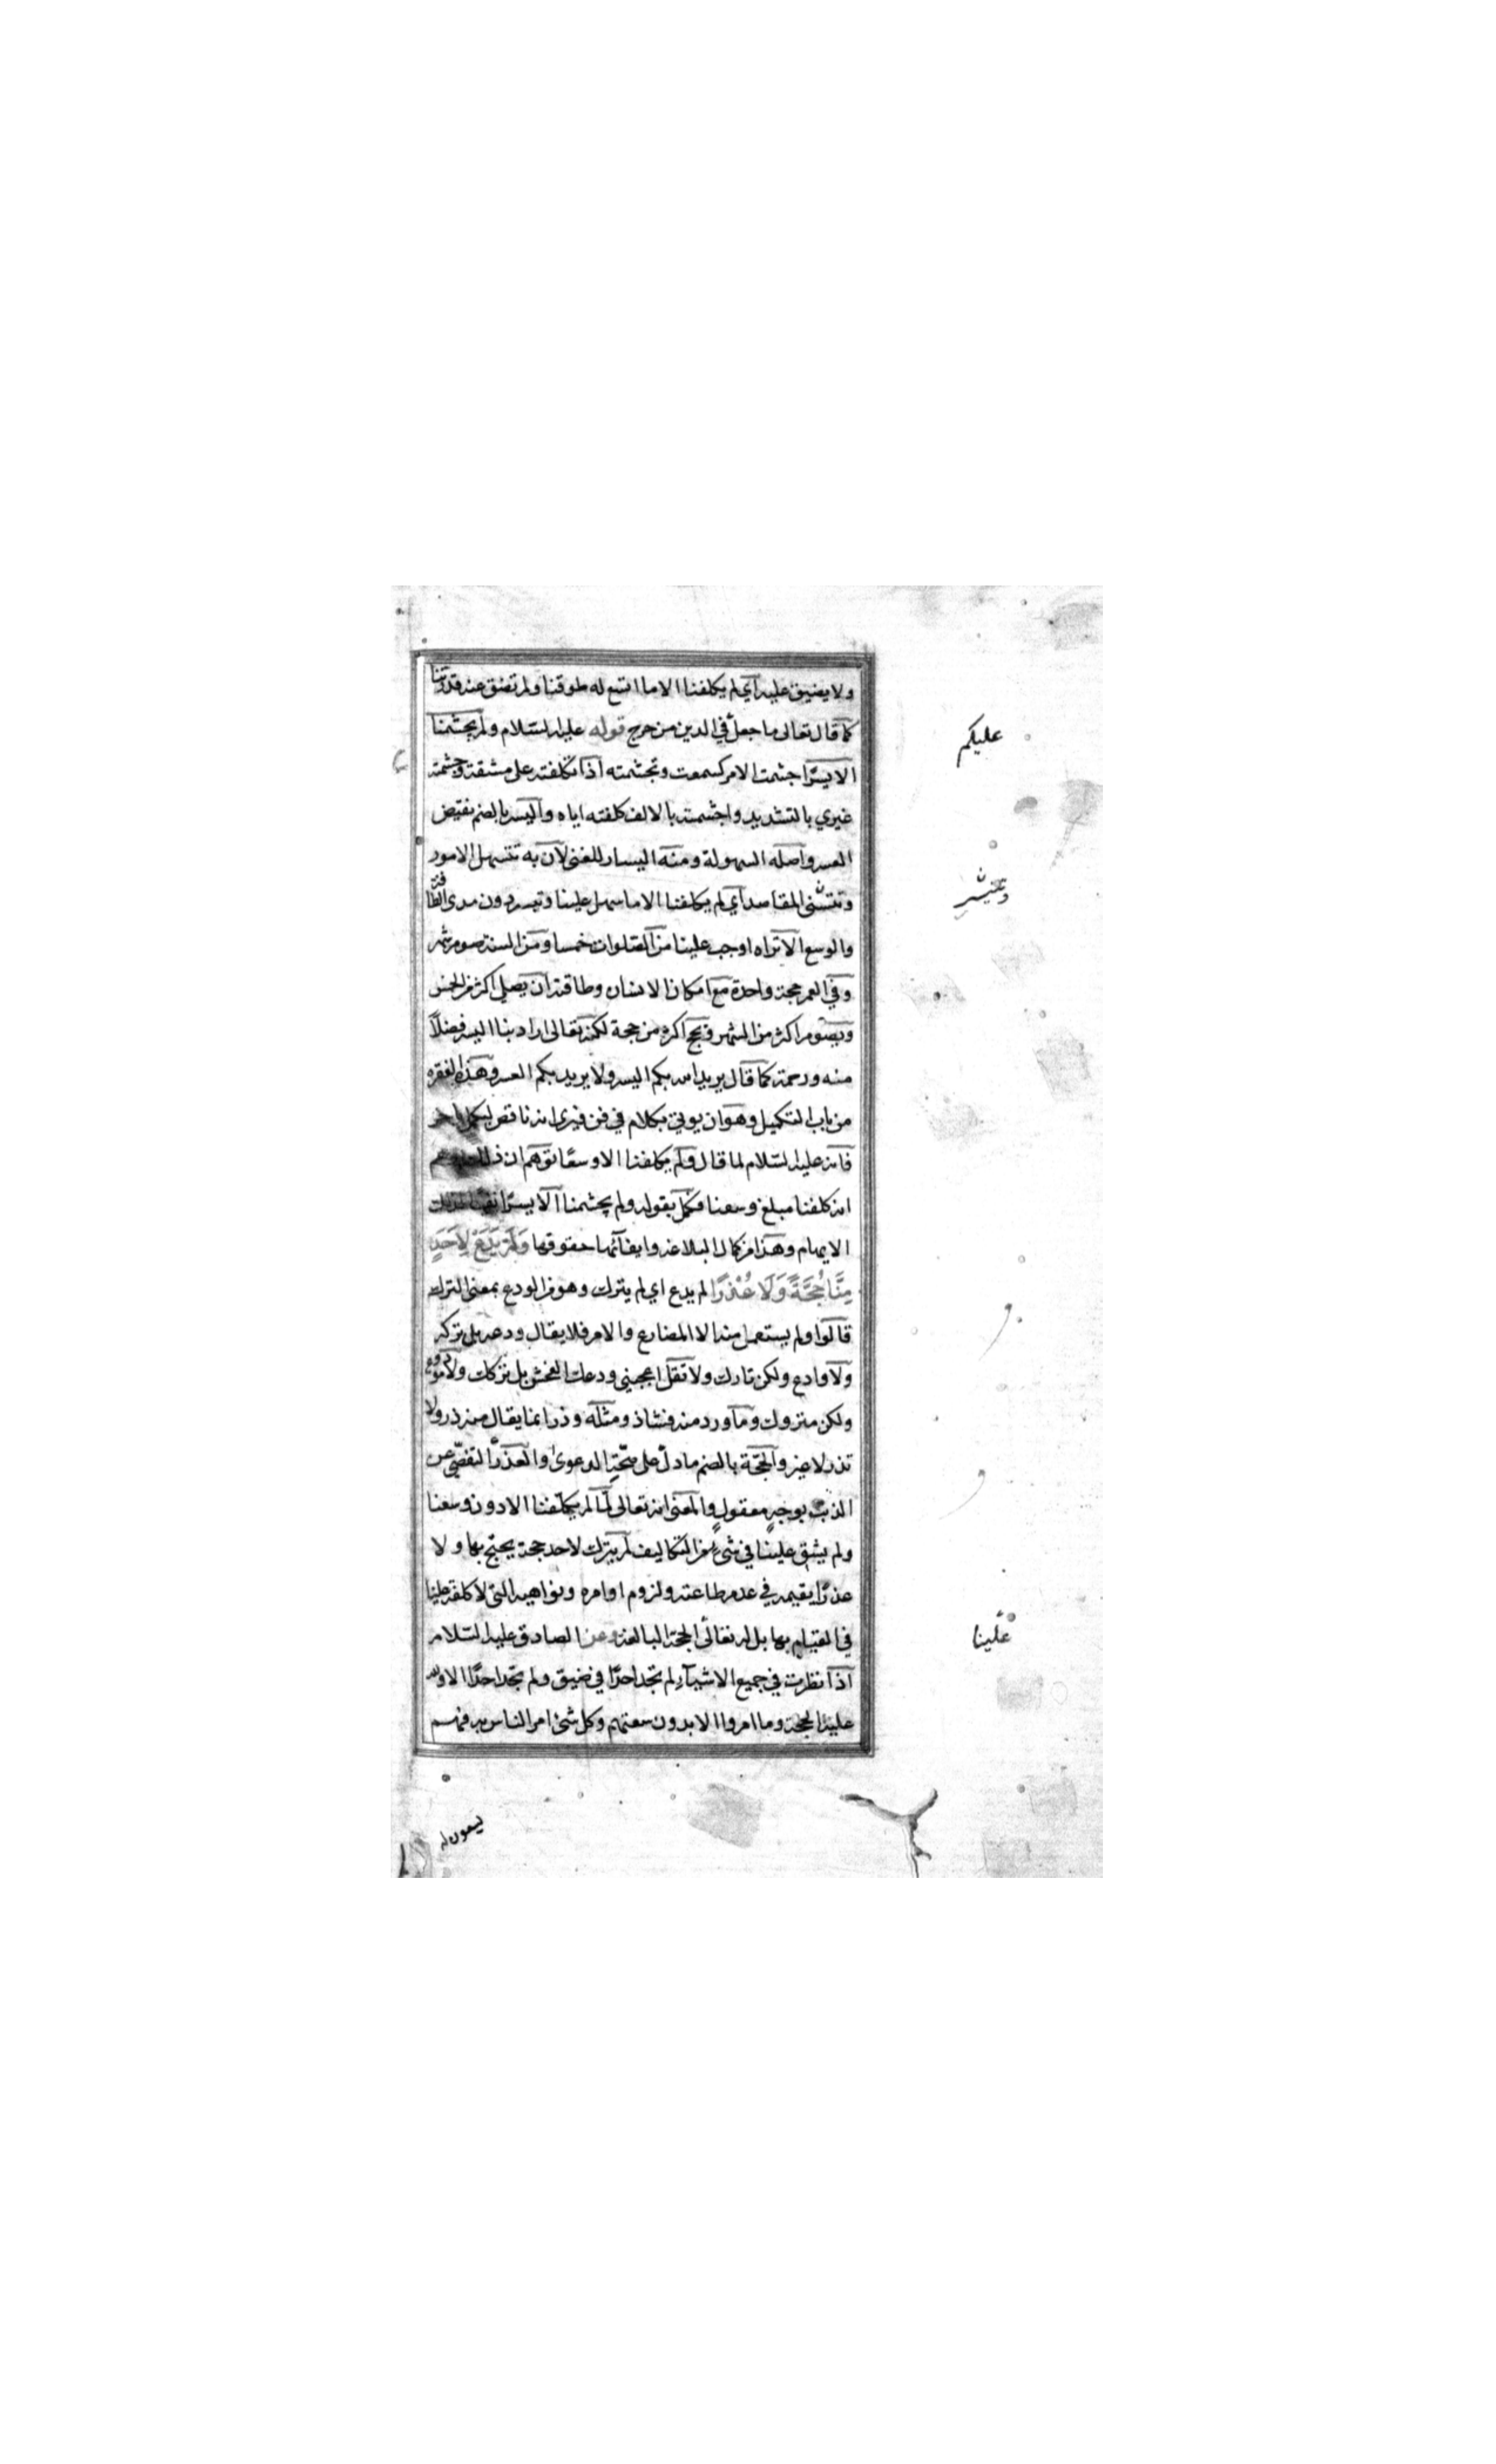 ولا يضيق عليه اي لم يكلفنا الا ما اتسع له طوقنا ولم تضق عنه قدرتنا
كما قال تعالى ما جعل في الدين من حرج قوله عليه السلام ولم يجشمنا
الا يسرا جشمت الامر كسمعت وتجشمته اذا تكلفته على مشقة وجشمته
غيري بالتشديد واجشمته بالالف كلفته اياه واليسر بالضم نقيض
العسر واصله السهولة ومنه اليسار للغنى لان به تتسهل الامور
وتتسنى المقاصد اي لم يكلفنا الا ما سهل علينا وتيسر دون مدى الطاقة
والوسع الا تراه اوجب علينا من الصلوات خمسا ومن السنة صوم شهر
وفي العمر حجة واحدة مع امكان الانسان وطاقته ان يصلي اكثر من الخمس
ويصوم اكثر من الشهر ويحج اكثر من حجة لكنه تعالى اراد بنا اليسر فضلا
منه ورحمة كما قال يريد الله بكم اليسر ولا يريد بكم العسر وهذه الفقره
من باب التكميل وهو ان يوتى بكلام في فن فيرى انه ناقص فيكمل باخر
فانه عليه السلام لما قال ولم يكلفنا الا وسعا توهم ان
انه كلفنا مبلغ وسعنا فكمل بقوله ولم يجشمنا الا يسرا نفيا لذلك
الايهام وهذا من كمال البلاغة وايفائها حقوقها وَلَمْ يَدَعْ لِأَحَدٍ
مِنَّا حُجَّةً وَلَا عُذْرًا لم يدع اي لم يترك وهو من الودع بمعنى الترك
قالوا ولم يستعمل منه الا المضارع والامر فلا يقال ودعه بل تركه
ولا وادع ولكن تارك ولا تقل اعجبني ودعك الفحش بل تركك ولا مودوع
ولكن متروك وما ورد منه فشاذ ومثله وذر انما يقال منه ذر ولا
تذر لا غير والحجة بالضم ما دل على صحة الدعوى والعذر التفصي عن
الذنب بوجه معقول والمعنى انه تعالى لما لم يكلفنا الا دون وسعنا
ولم يشق علينا في شيء من التكاليف لم يترك لاحد حجة يحتج بها ولا
عذرا يقيمه في عدم طاعته ولزوم اوامره ونواهيه التي لا كلفة علينا
في القيام بها بل له تعالى الحجة البالغة وعن الصادق عليه السلام
اذا نظرت في جميع الاشياء لم تجد احدا في ضيق ولم تجد احدا الا ولله
عليه الحجة وما امروا الا بدون سعتهم وكل شئ امر الناس به فهم
يسعون له
عليكم
علينا